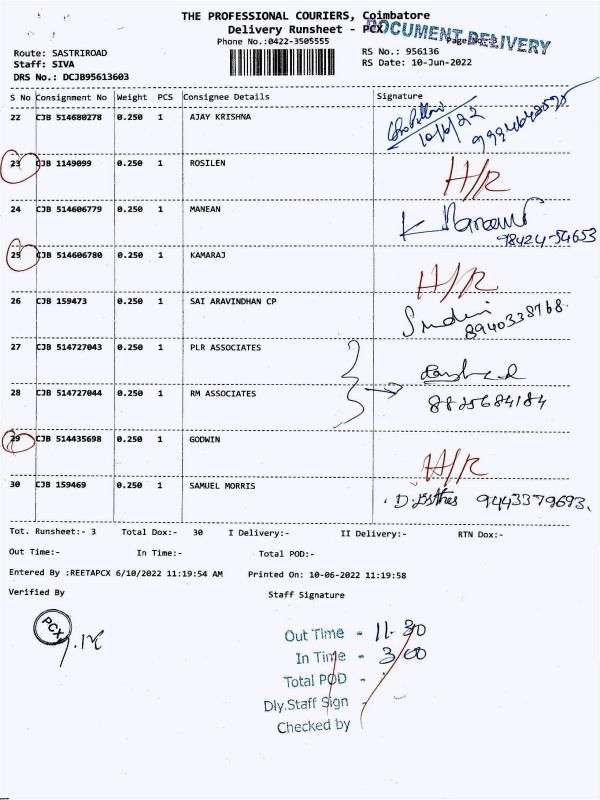 THE PROFESSIONAL COURIERS, Coimbatore
Delivery Runsheet - PCX
DOCUMENT DELIVERY
Phone No.:0422-3505555
Page No.: 3
Route: SASTRIROAD
RS No.: 956136
Staff: SIVA
RS Date: 10-Jun-2022
DRS No.: DCJB95613603
S No Consignment No Weight PCS Consignee Details Signature
22 CJB 514680278 0.250 1 AJAY KRISHNA
10/6/22
23 CJB 1149099 0.250 1 ROSILEN H/R
24 CJB 514606779 0.250 1 MANEAN K
98424-54653
25 CJB 514606780 0.250 1 KAMARAJ H/R
26 CJB 159473 0.250 1 SAI ARAVINDHAN CP
8940338768
27 CJB 514727043 0.250 1 PLR ASSOCIATES
28 CJB 514727044 0.250 1 RM ASSOCIATES 8825684184
29 CJB 514435698 0.250 1 GODWIN H/R
30 CJB 159469 0.250 1 SAMUEL MORRIS D. Esther 9443379693.
Tot. Runsheet:- 3 Total Dox:- 30 I Delivery:- II Delivery:- RTN Dox:-
Out Time:- In Time:- Total POD:-
Entered By :REETAPCX 6/10/2022 11:19:54 AM Printed On: 10-06-2022 11:19:58
Verified By Staff Signature
PCX
Out Time - 11.30
In Time - 3.00
Total POD -
Dly.Staff Sign -
Checked by